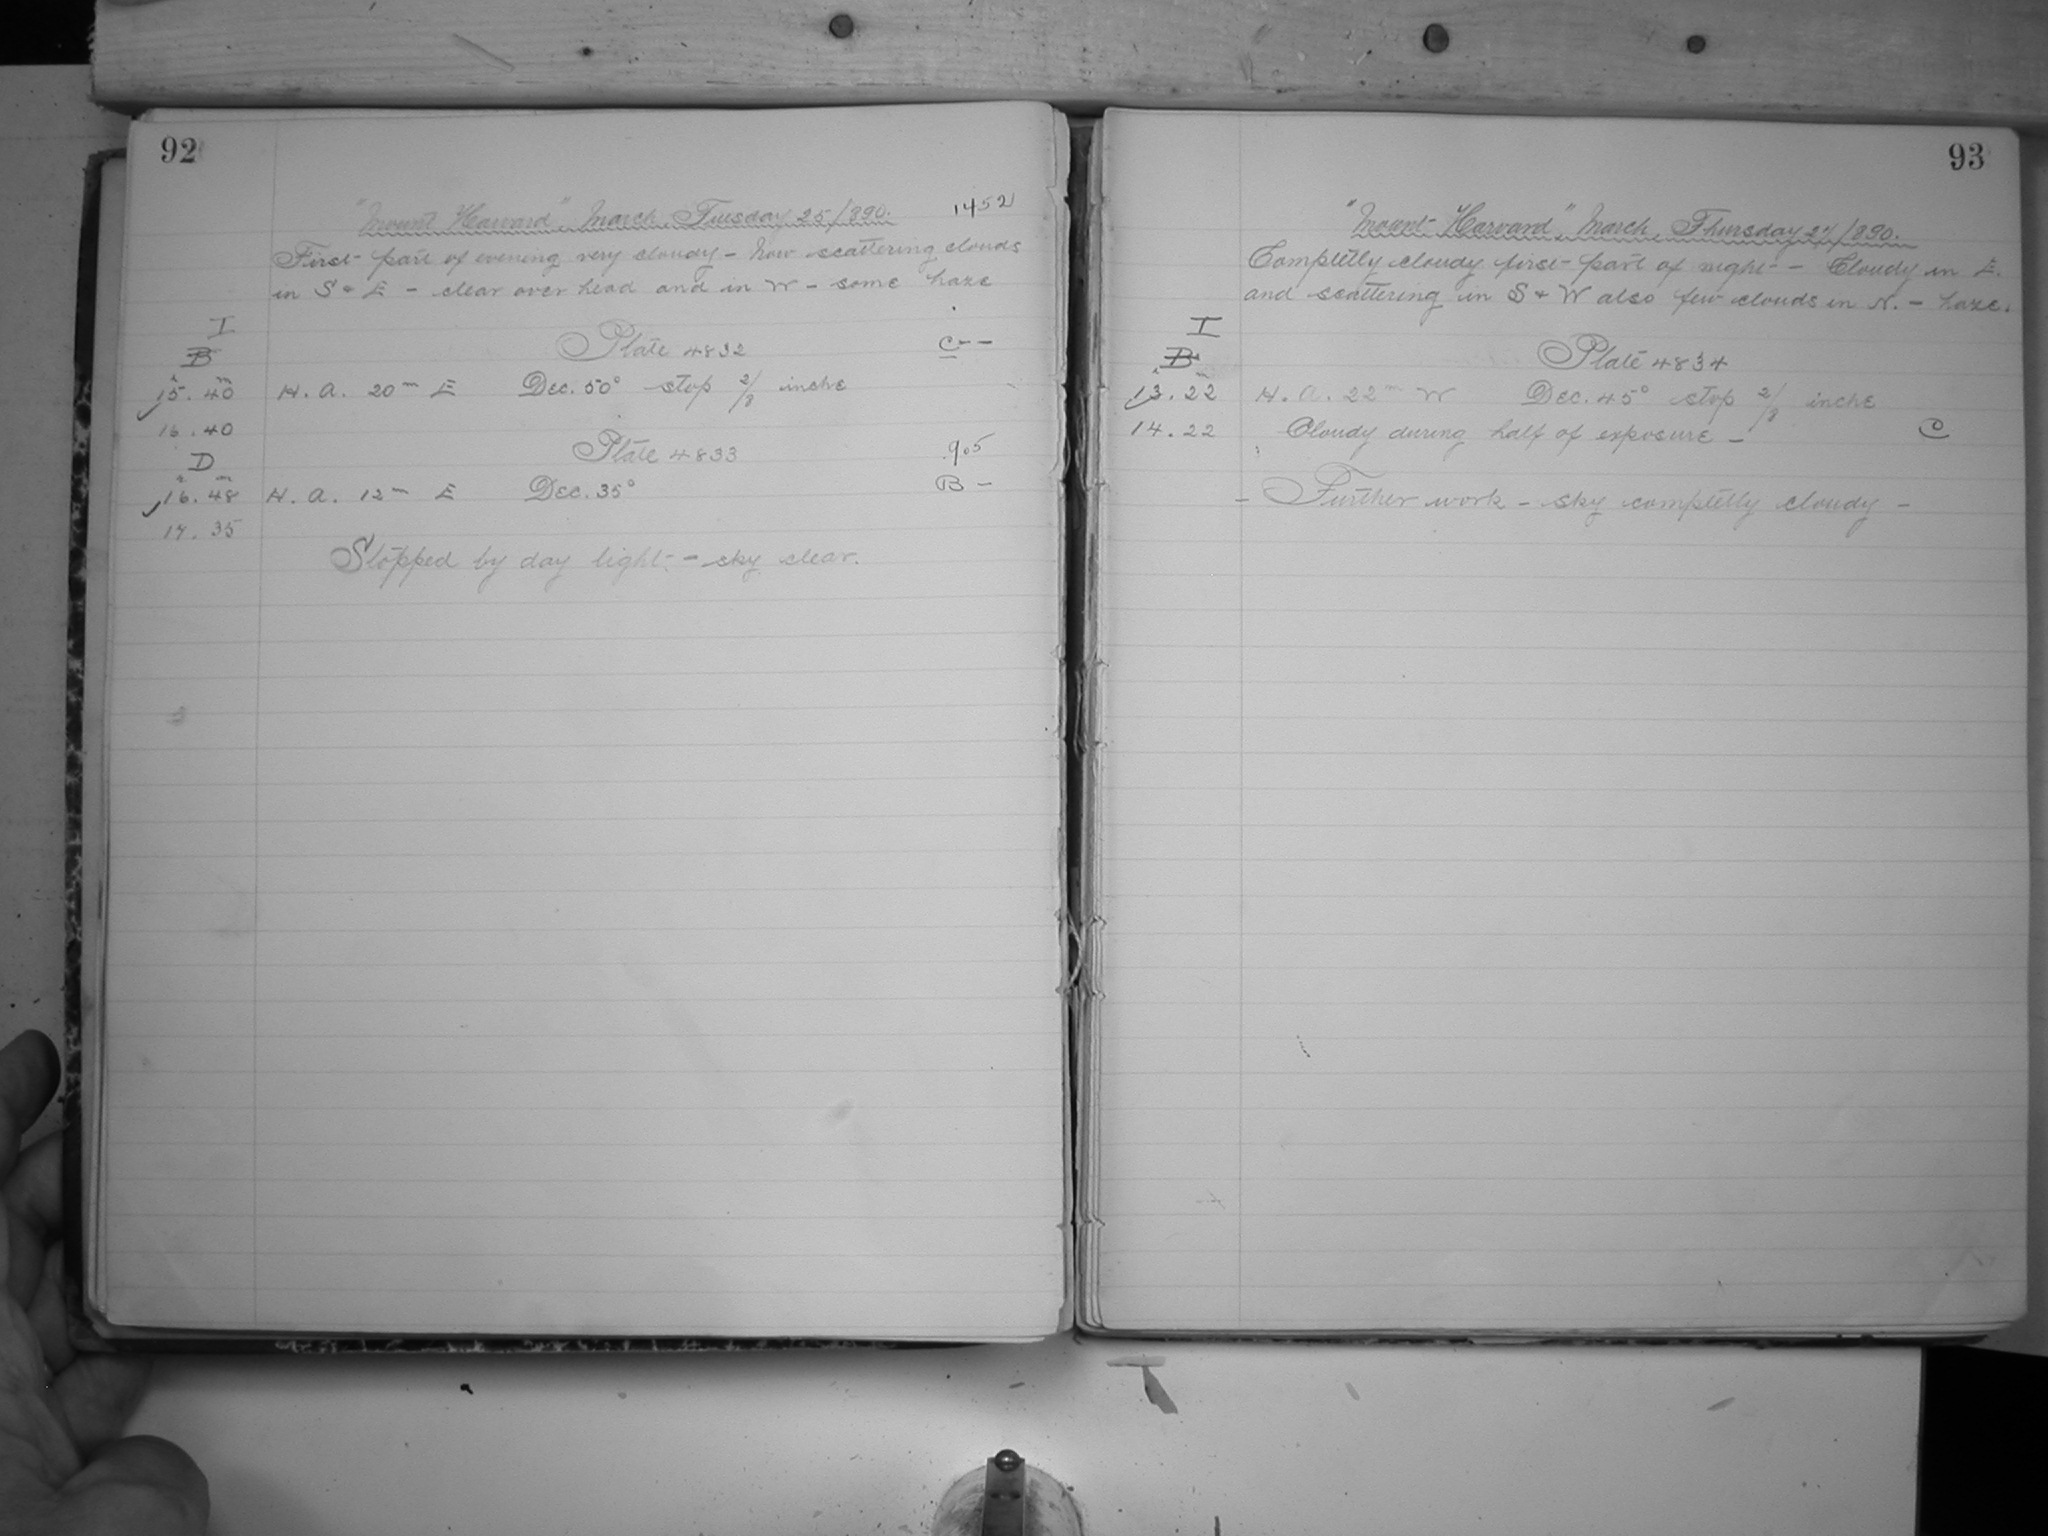 92
"Mount Harvard", March, Tuesday 25/890.
1452
First part of evening very cloudy - Now scattering clouds
in S & E - clear over head and in W - some haze
I
B
Plate 4832
C--
h m
15.40 H. A. 20m E Dec. 50° stop 2/8 inche
16.40
Plate 4833
9.5
D
h m
16.48 H. A. 12m E Dec. 35°
B -
17.35
Stopped by day light - sky clear.
93
"Mount Harvard", March, Thursday 27/890.
Completly cloudy first part of night - Cloudy in E.
and scattering in S & W also few clouds in N. - haze.
I
B
Plate 4834
h m
13.22 H. A. 22m W Dec. 45° stop 2/8 inche
14.22 Cloudy during half of exposure - C
- Further work - sky completly cloudy -